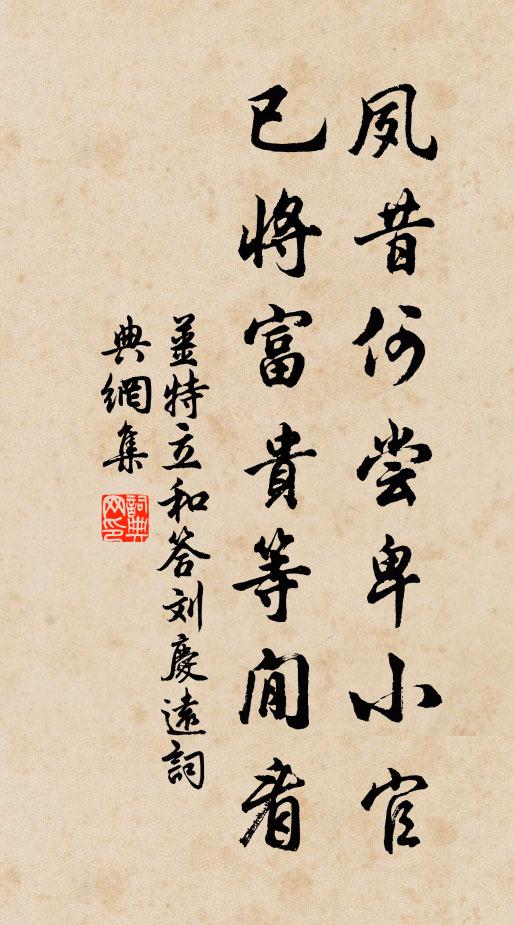 夙昔何尝卑小官
已將富貴等閒看
薑特立和答刘慶遠詞
典網集
詞典网印